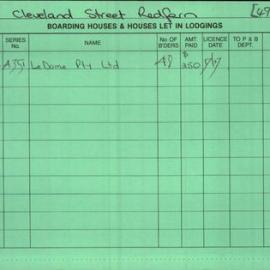 Cleveland Street Redfern [49
BOARDING HOUSES & HOUSES LET IN LODGINGS
SERIES No. NAME No OF B'DERS AMT. PAID LICENCE DATE TO P & B DEPT.
LeDome Pty Ltd $ 350